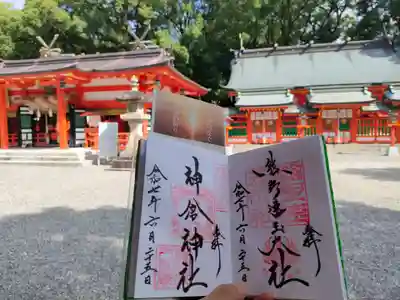 熊野速玉大社
奉拝
令和七年六月二十五日
神倉神社
奉拝
令和七年六月二十五日